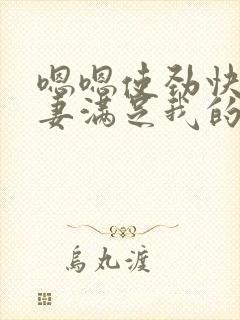 嗯嗯使劲快
妻满足我的
乌丸渡